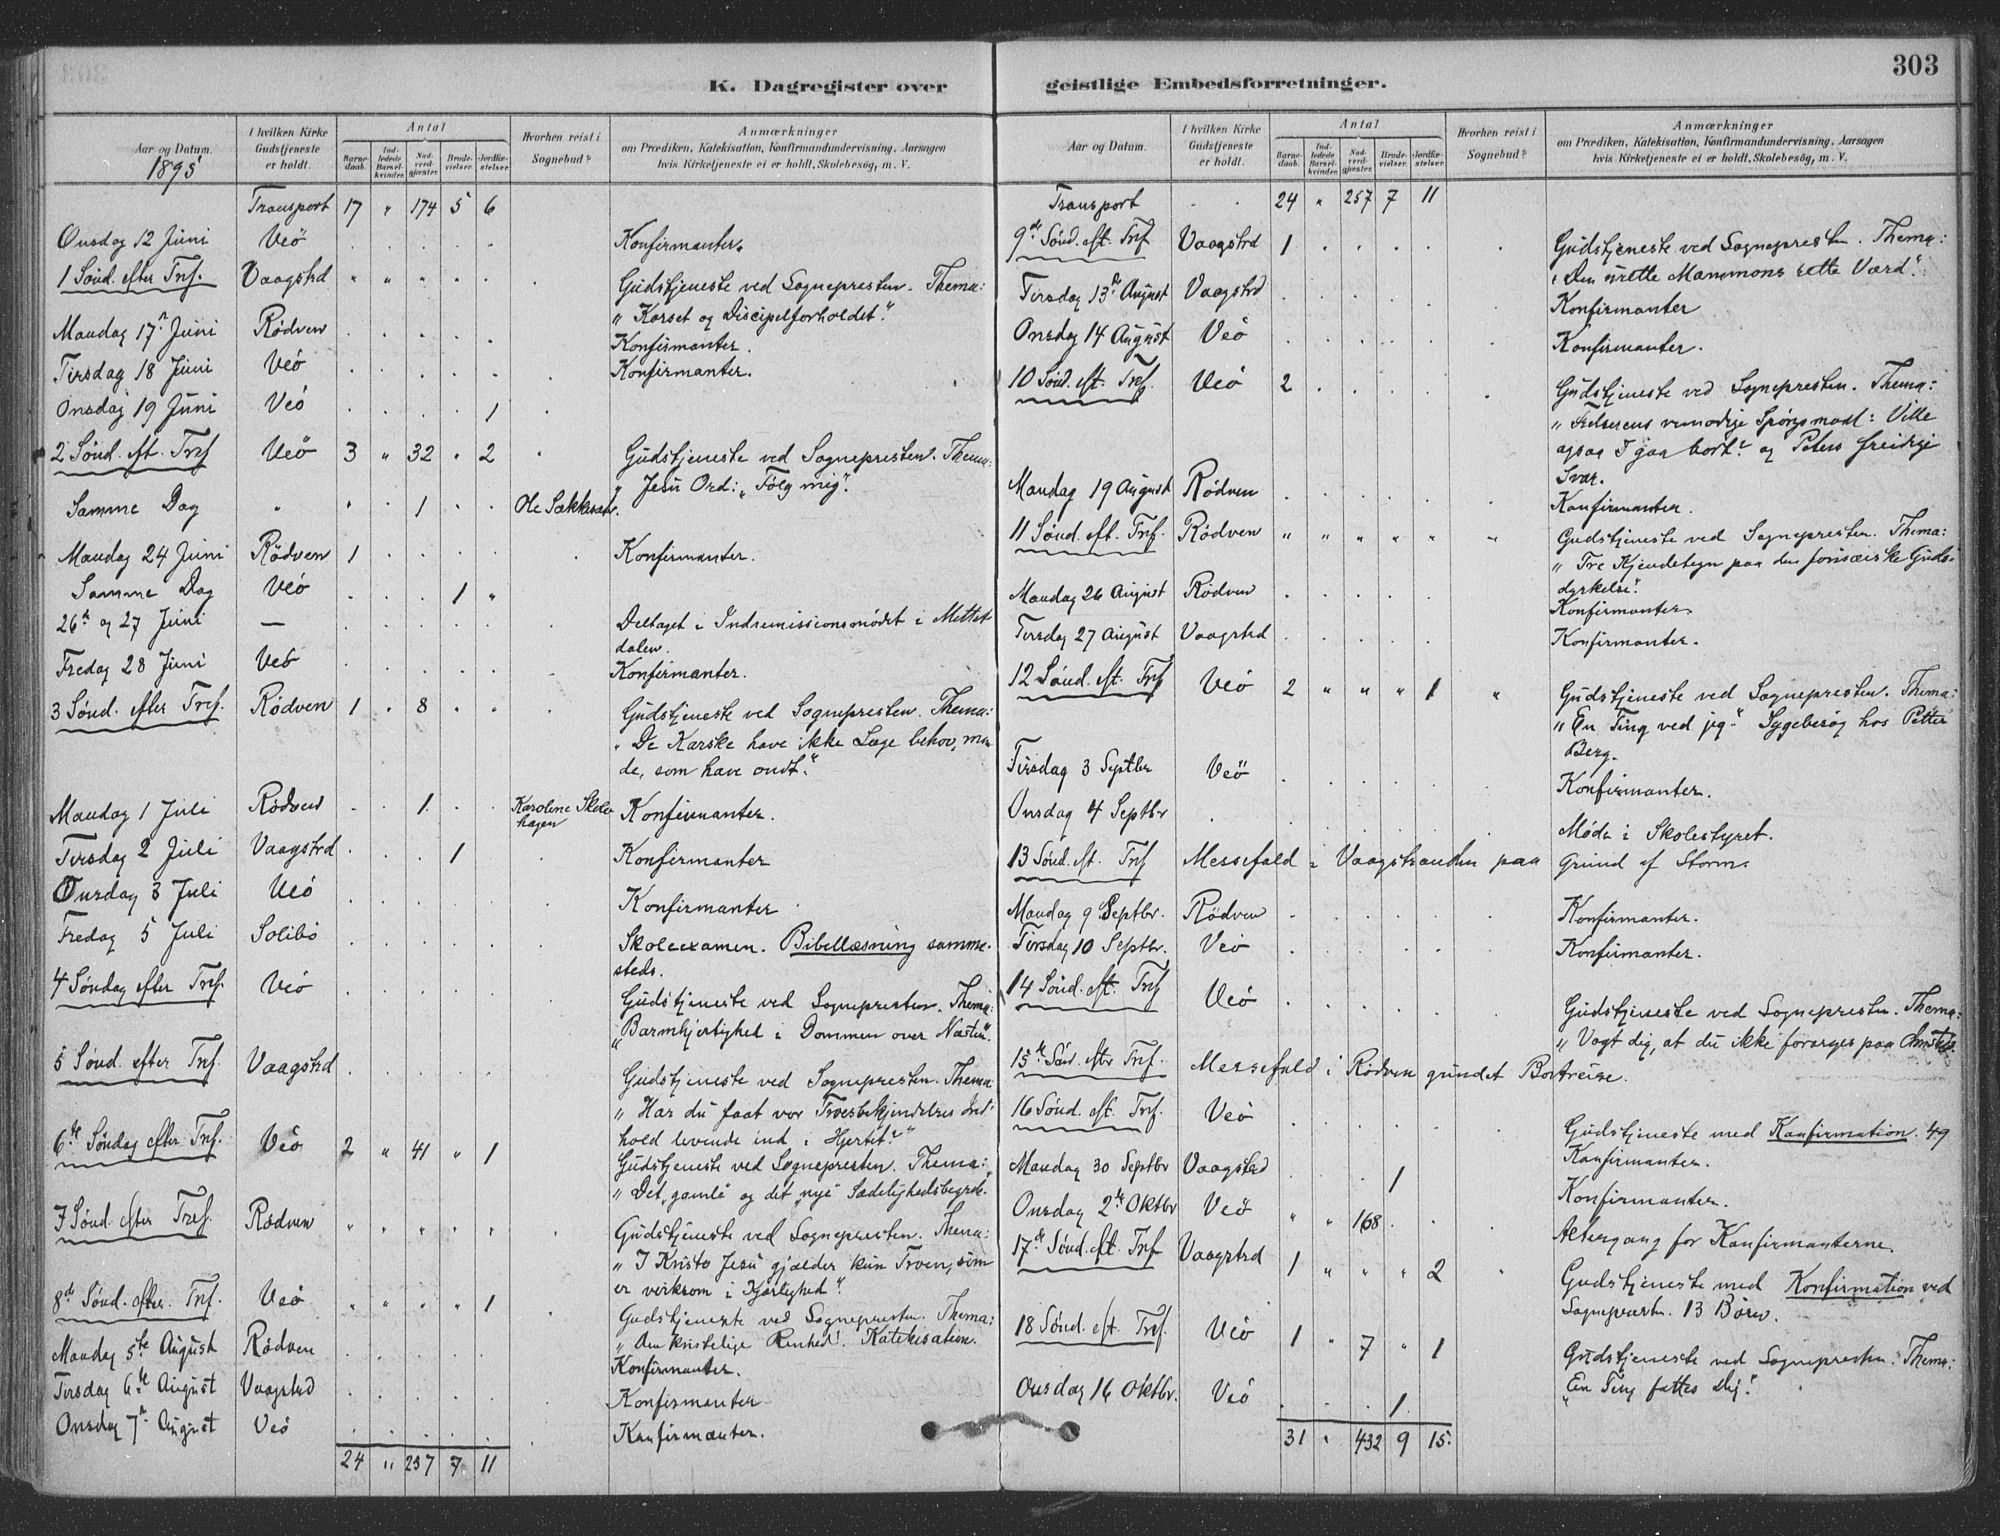 303
K. Dagregister over
geistlige Embedsforretninger.
Aar og Datum.
1895
I hvilken Kirke Gudstjeneste er holdt.
Antal
Barnedaab.
Indledede Barselkvinder.
Nadverdgjæster.
Brudevielser.
Jordfæstelser.
Hvorhen reist i Sognebud?
Anmærkninger
om Prædiken, Katekisation, Konfirmandundervisning. Aarsagen
hvis Kirketjeneste ei er holdt, Skolebesøg, m. V.
Transport 17 " 174 5 6
Onsdag 12 Juni Veö . . . . . Konfirmanter.
1 Sönd. efter Tref. Vaagstrd " " " . . Gudstjeneste ved Sognepresten. Thema:
"Korset og Discipelforholdet."
Mandag 17de Juni Rödven . . . . . Konfirmanter.
Tirsdag 18 Juni Veö . . . . . Konfirmanter.
Onsdag 19 Juni Veö . . . . 1
2 Sönd. eft. Tref Veö 3 " 32 . 2 . Gudstjeneste ved Sognepresten. Thema:
"Jesu Ord: "Fölg mig".
Samme Dag " " . 1 . . Ole Sækkesæt.
Mandag 24 Juni Rödven 1 . . . . . Konfirmanter.
Samme Dag Veö . . . 1 "
26de og 27 Juni — . . . . . . Deltaget i Indremissionsmödet i Mittet-
dalen.
Fredag 28 Juni Veö . . . . . Konfirmanter.
3 Sönd. efter Tref. Rødven 1 . 8 . . . Gudstjeneste ved Sognepresten. Thema:
"De Karske have ikke Læge behov, men
de, som have ondt."
Mandag 1 Juli Rödven . . 1. . . Karoline Skole-
hagen Konfirmanter.
Tirsdag 2 Juli Vaagstrd . . . 1 . Konfirmanter
Onsdag 3 Juli Veö . . . . . Konfirmanter
Fredag 5 Juli Solibö . . . . . Skoleexamen. Bibellæsning samme-
steds.
4 Söndag efter Tref. Veö . . . . . Gudstjeneste ved Sognepresten. Thema:
"Barmhjertighed i Dommen over Næsten".
5 Sönd. efter Tref. Vaagstrd . . . . . Gudstjeneste ved Sognepresten. Thema:
"Har du faat vor Troesbekjendelses Ind-
hold levende ind i Hjertet?"
6te Söndag efter Tref. Veö 2 " 41 " 1 Gudstjeneste ved Sognepresten. Thema:
"Det "gamle" og det "nye" Sædelighedsbegreb.
7 Sönd. efter Tref. Rødven " " " " . . Gudstjeneste ved Sognepresten. Thema:
"I Kristo Jesu gjælder kun Troen, som
er virksom i Kjærlighed".
8de Sönd. efter. Tref. Veö " " " " 1 . Gudstjeneste ved Sognepresten. Thema:
"Den kristelige Renhed". Katekisation.
Mandag 5te August Rödven . . . . . Konfirmanter.
Tirsdag 6te August Vaagstrd . . . . . Konfirmanter
Onsdag 7de August Veö . . . . . Konfirmanter.
24 " 257 7 11
Aar og Datum.
I hvilken Kirke Gudstjeneste er holdt.
Antal
Barnedaab.
Indledede Barselkvinder.
Nadverdgjæster.
Brudevielser.
Jordfæstelser.
Hvorhen reist i Sognebud?
Anmærkninger
om Prædiken, Katekisation, Konfirmandundervisning. Aarsagen
hvis Kirketjeneste ei er holdt, Skolebesøg, m. V.
Transport . . 24 " 257 7 11
9de Sönd. eft. Tref Vaagstrd 1 . . . . . Gudstjeneste ved Sognepresten. Thema:
"Den urette Mammons rette Værd".
Tirsdag 13de August Vaagstrd . . . . . Konfirmanter
Onsdag 14 August Veö . . . . . Konfirmanter.
10 Sönd. eft. Tref. Veö 2 . . . . . Gudstjeneste ved Sognepresten. Thema:
"Frelserens vemodige Spörgsmaal: Ville
ogsaa I gaa bort? og Peters freidige
Svar.
Mandag 19 August Rödven . . . . . Konfirmanter.
11 Sönd. eft. Tref. Rødven " " " " " " Gudstjeneste ved Sognepresten. Thema:
"Tre Kjendetegn paa den farisæiske Guds-
dyrkelse".
Mandag 26 August Rödven . . . . . Konfirmanter.
Tirsdag 27 August Vaagstrd . . . . . Konfirmanter.
12 Sönd. eft. Tref Veö 2 " " " 1 " Gudstjeneste ved Sognepresten. Thema:
"En Ting ved jeg." Sygebesög hos Petter
Berg.
Tirsdag 3 Septbr Veö . . . . . Konfirmanter.
Onsdag 4 Septbr . . . . . . Möde i Skolestyret.
13 Sönd. eft. Tref Messefald i Vaagstranden paa Grund af Storm.
Mandag 9 Septbr. Rödven . . . . . Konfirmanter.
Tirsdag 10 Septbr. Veö . . . . . Konfirmanter.
14 Sönd. eft. Tref Veö . . . . . Gudstjeneste ved Sognepresten. Thema:
"Vogt dig, at du ikke forarges paa Christus.
15de Sönd. eftr Tref. Messefald i Rödven grundet Bortreise.
16 Sönd. eft. Tref. Veö . . . . . Gudstjeneste med Konfirmation. 49
Konfirmanter.
Mandag 30 Septbr Vaagstrd . . . 1 Konfirmanter.
Onsdag 2de Oktbr Veö " " 168 . . . Altergang for Konfirmanterne.
17de Sönd. eft. Tref Vaagstrd 1 " " " 2 " Gudstjeneste med Konfirmation ved
Sognepresten. 13 Börn.
18 Sönd. eft. Tref. Veö 1 " 7 " 1 Gudstjeneste ved Sognepresten. Thema:
"En Ting fattes dig".
Onsdag 16 Oktbr. Veö . . . 1.
31 . 432 9 15.